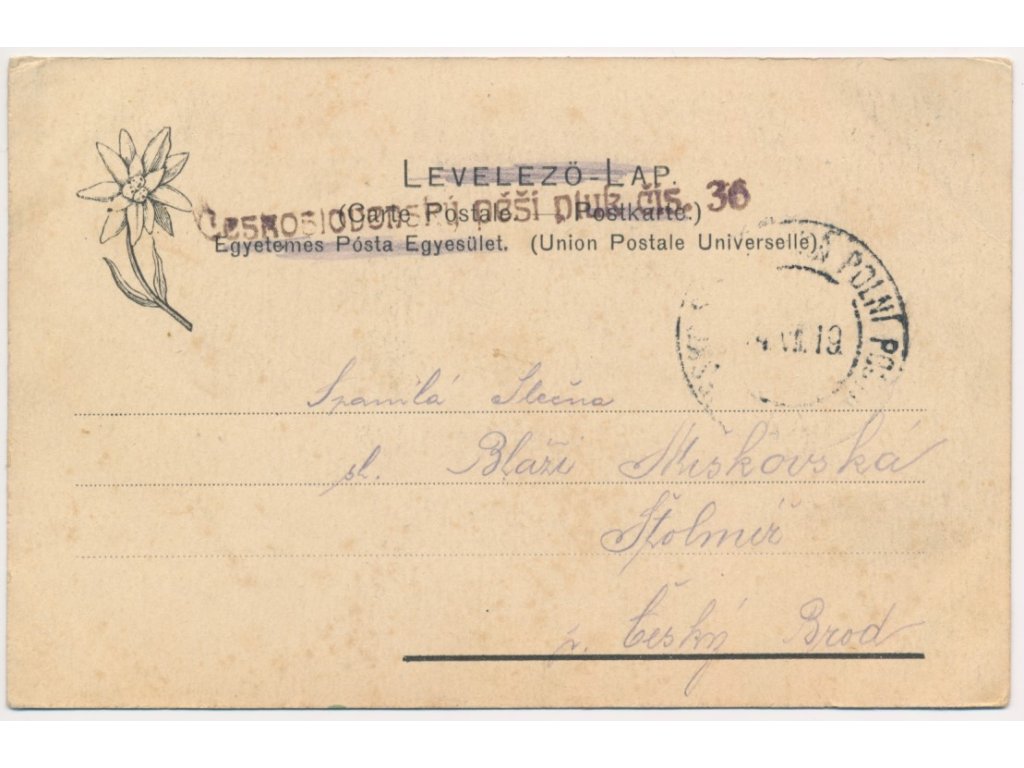 LEVELEZŐ-LAP.
Československý pěší pluk čís. 36
(Carte Postale. — Postkarte.)
Egyetemes Pósta Egyesület. (Union Postale Universelle)
POLNÍ
VII. 19
Spanilá Slečna
sl. Blaži Miškovská
Štolmíř
Český Brod